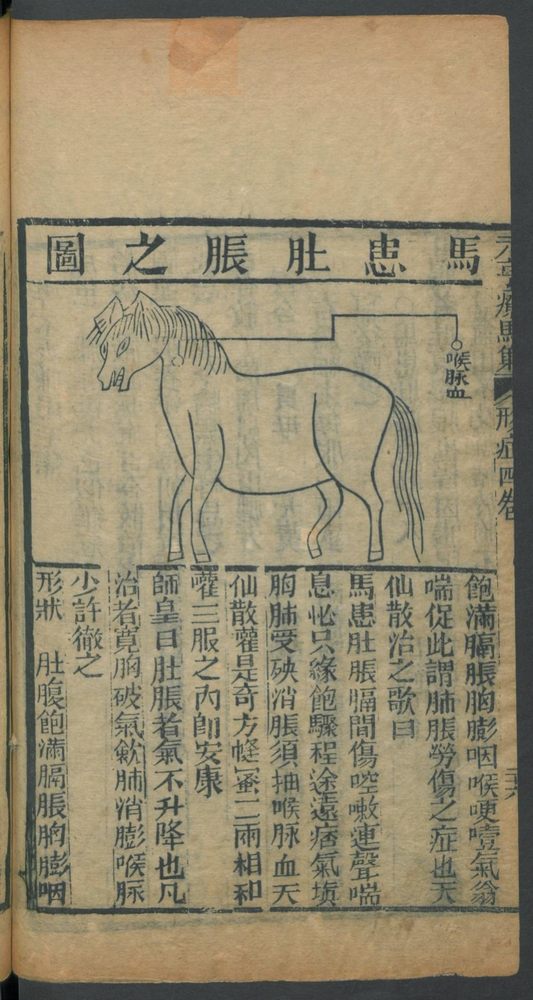 馬患肚脹之圖
喉脉血
飽滿膈脹胸膨咽喉哽噎氣翁
喘促此謂肺脹勞傷之症也天
仙散治之歌曰
馬患肚脹膈間傷啌嗽連聲喘
息忙只緣飽驟程途遠痞氣塡
胸肺受殃消脹須抽喉脉血天
仙散灌是奇方蜜二兩相和
灌三服之內卽安康
師皇曰肚脹者氣不升降也凡
治者寛胸破氣歛肺消膨喉脉
少許徹之
形狀 肚腹飽滿膈脹胸膨咽
元亨療馬集 形症四卷
二十六